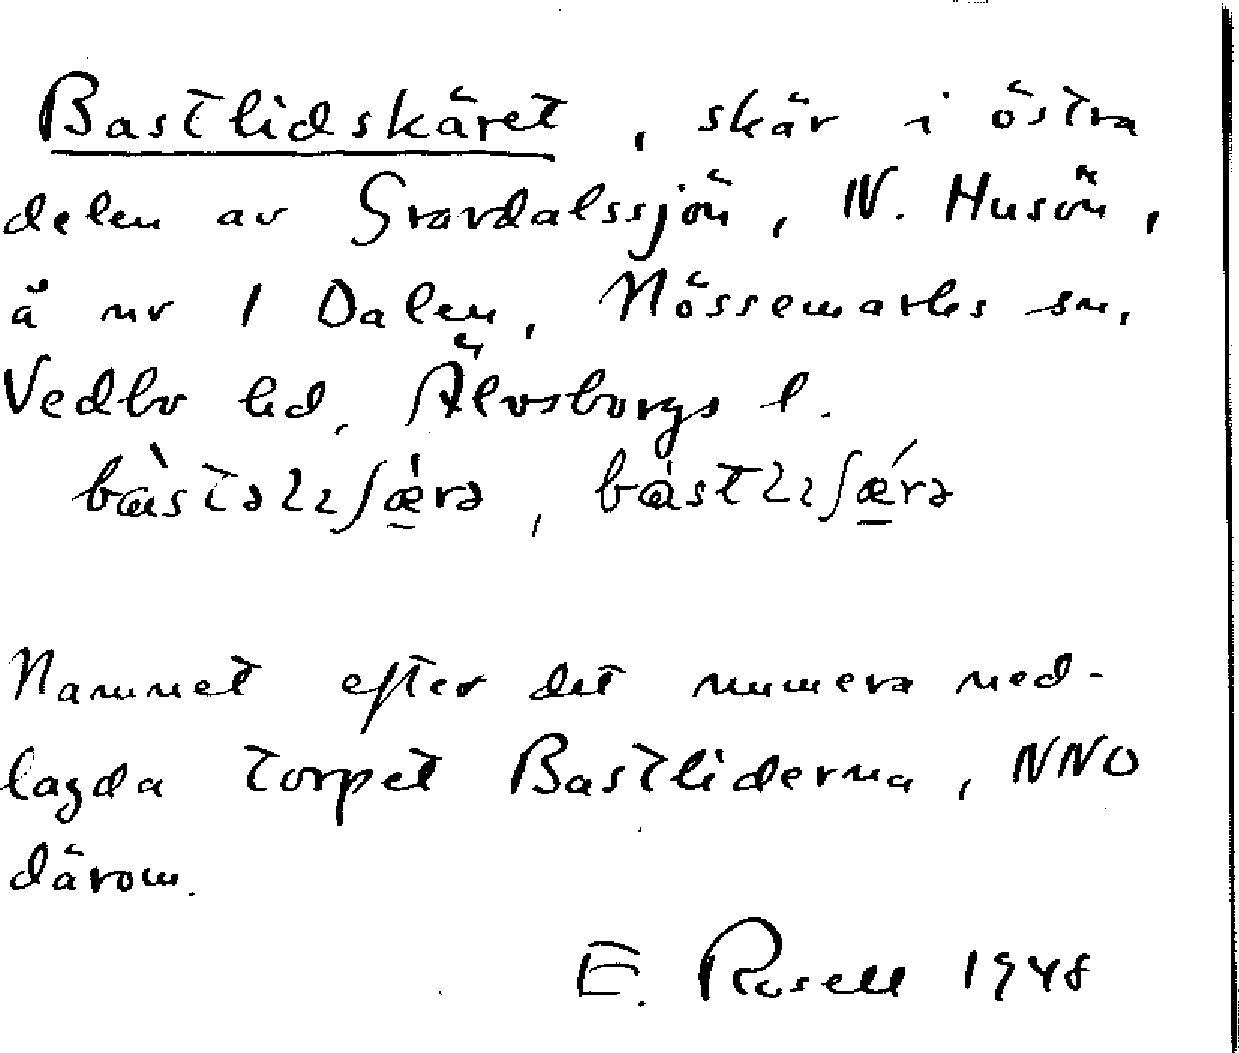 Bastlidskäret, skär i östra
delen av Gravdalssjön, N. Husön,
å nr 1 Dalen, Nössemarks sn,
Vedbo hd, Älvsborgs l.
Namnet efter det numera ned-
lagda torpet Bastliderna, NNO
därom.
E. Rosell 1948